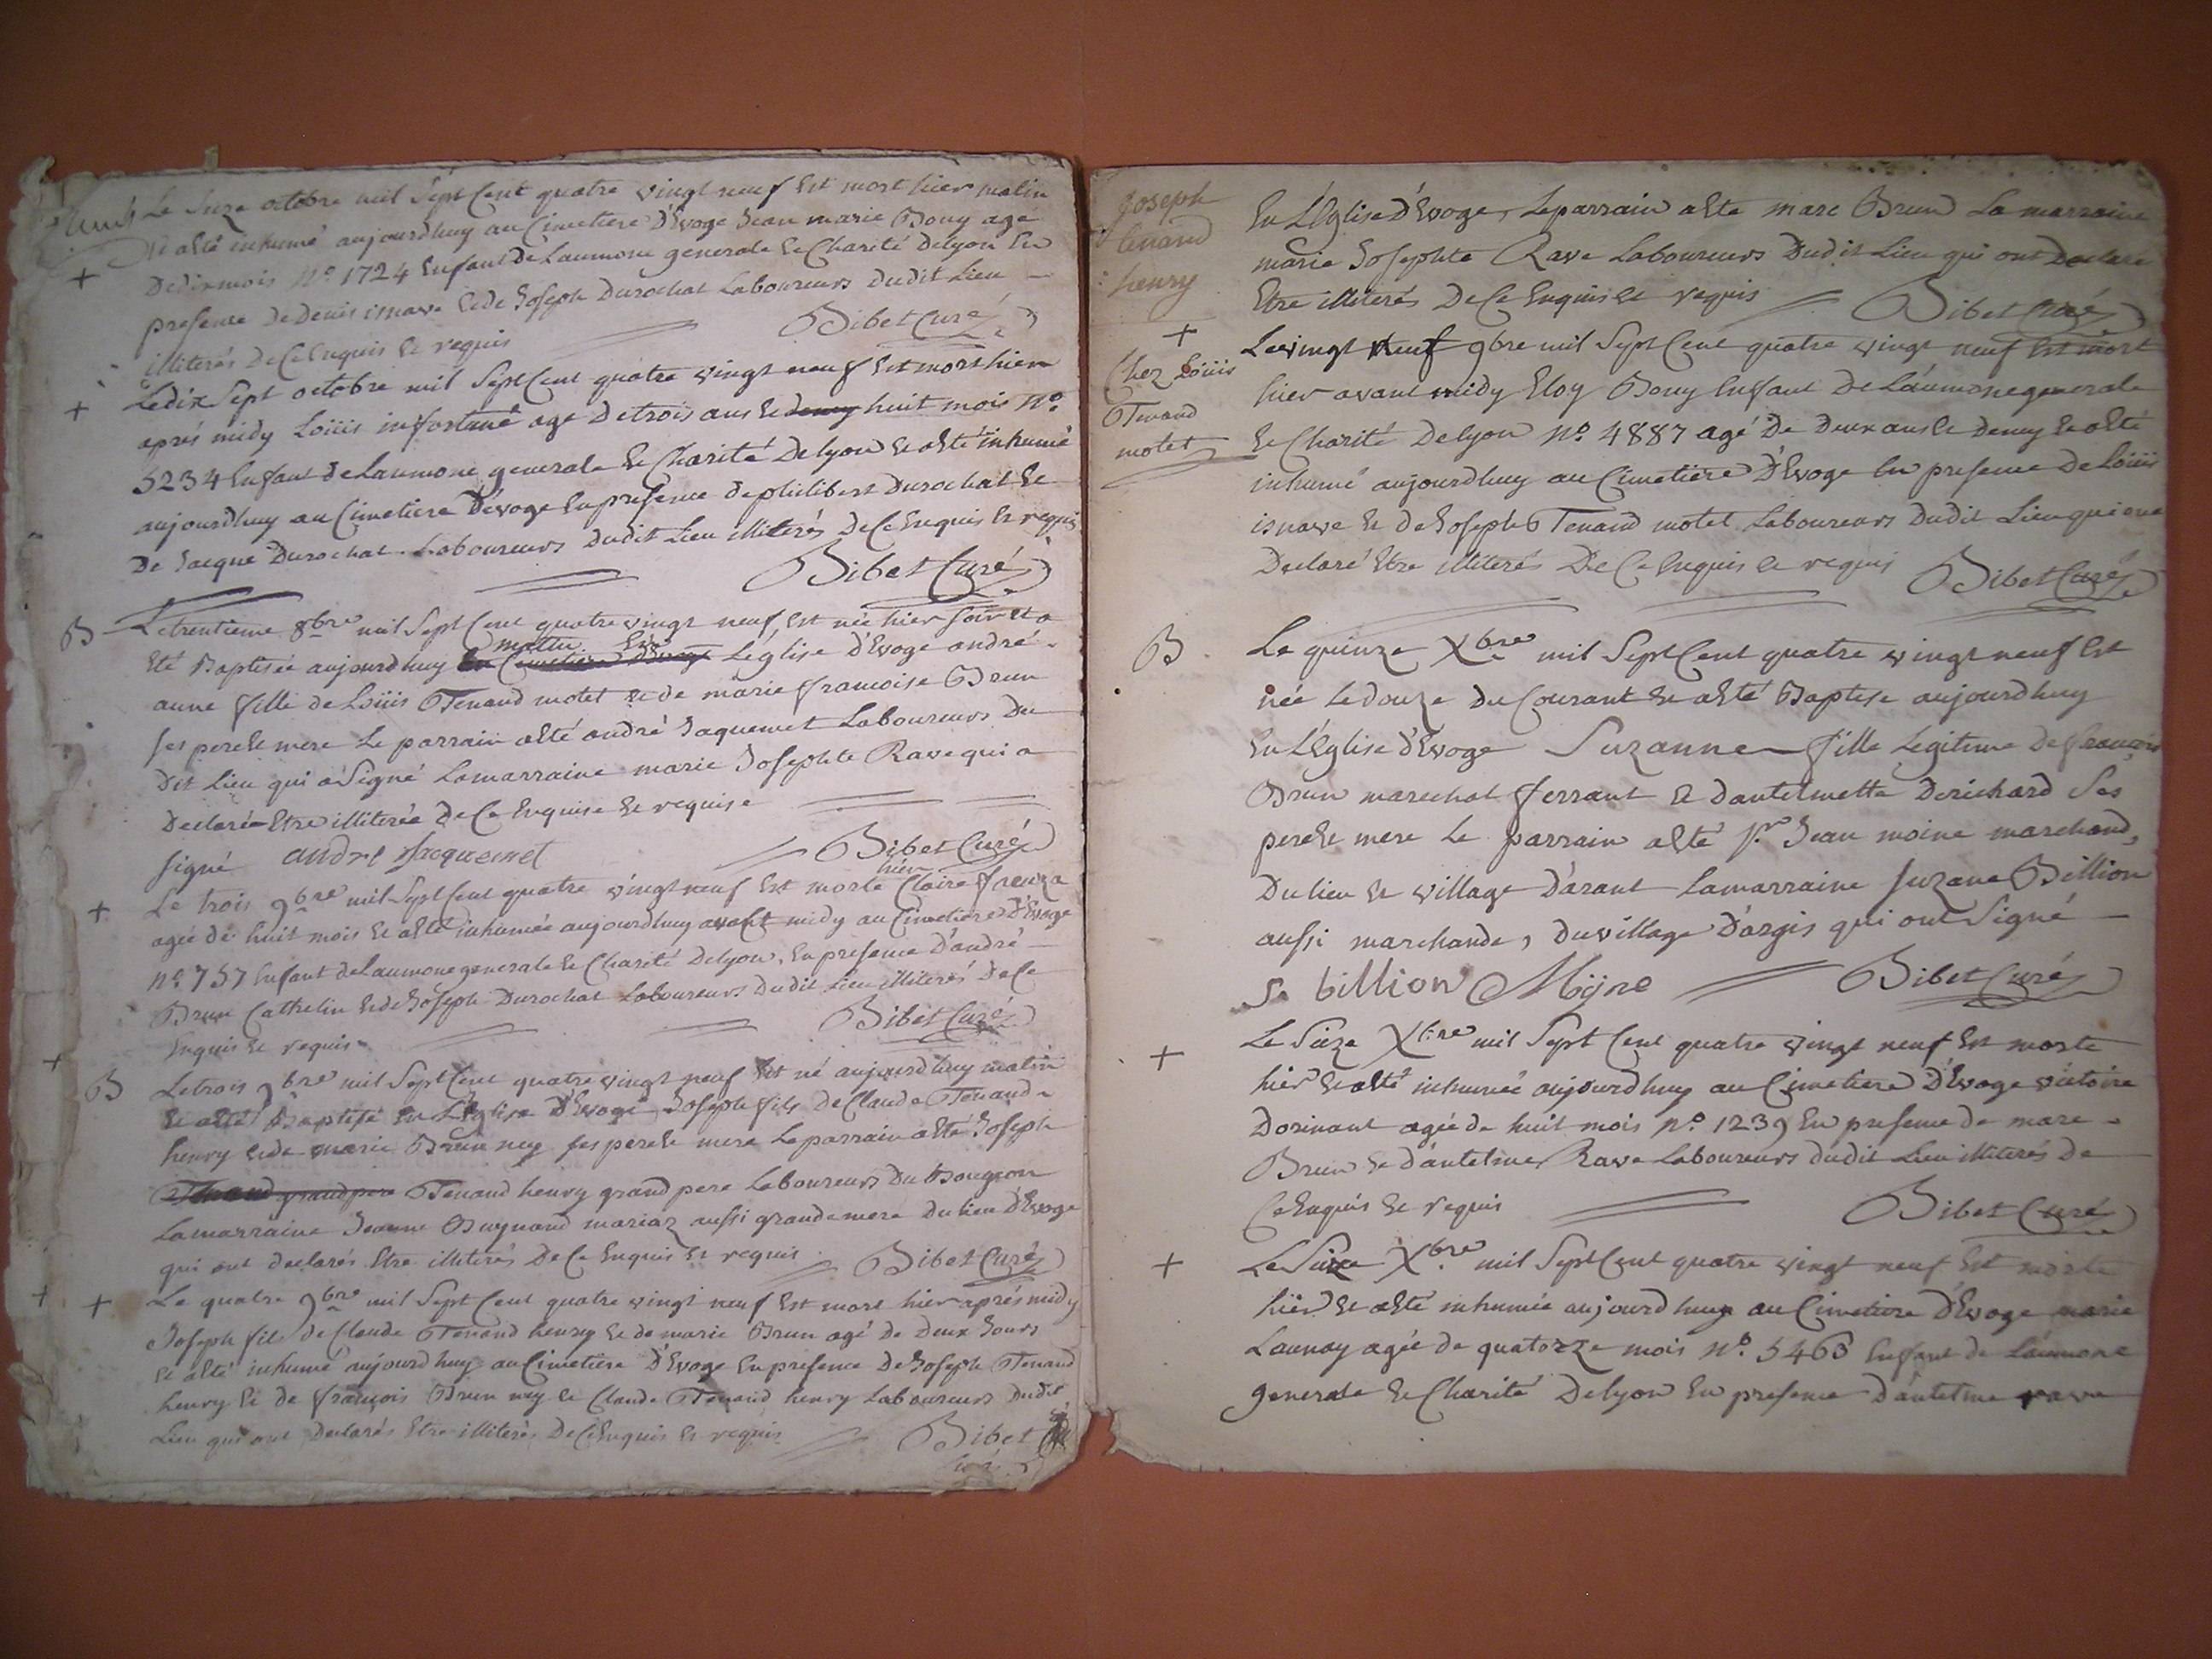 Le Seize octobre mil Sept Cent quatre vingt neuf Est mort hier matin
Et a été inhumé aujourdhuy au Cimetiere D'Evoge Jean marie Bony age
De dix mois N.º 1724 Enfant De Laumone generale Et Charité Delyon En
presence De Denis isnave Et de Joseph Durochat Laboureurs Dudit Lieu
illiterés De Ce Enquis Et requis
Bibet Curé
Le dix Sept octobre mil Sept Cent quatre vingt neuf Est mort hier
aprés midy Loüis infortuné agé De trois ans Et demy huit mois N.º
5234 Enfant De Laumone generale Et Charité Delyon Et a été inhumé
aujourdhuy au Cimetiere D'Evoge En presence de philibert Durochat Et
De Jacque Durochat Laboureurs Dudit Lieu illiterés De Ce Enquis Et requis
Bibet Curé
B Le trentieme 8bre mil Sept Cent quatre vingt neuf Est née hier Soir Et a
matin
Eté Baptisée aujourdhuy En Cimetiere D'Evoge L'église D'Evoge andré
anne fille de Loüis Tenand motet et de marie francoise Brun
Ses pere Et mere Le parrain a Eté andré Jaquemet Laboureurs Du
Dit Lieu qui a Signé La marraine marie Josephte Rave qui a
Declarée Etre illiterée De Ce Enquise Et requise
Signé andre Jacquemet
Bibet Curé
hier
Le trois 9bre mil Sept Cent quatre vingt neuf Est morte Claire
agée de huit mois Et a Eté inhumée aujourdhuy avant midy au Cimetiere D'Evoge
N.º 757 Enfant de Laumone generale Et Charité Delyon, En presence D'andré
Brun Cathelin Et de Joseph Durochat Laboureurs Dudit Lieu illiterés De Ce
Enquis Et requis
Bibet Curé
B Le trois 9bre mil Sept Cent quatre vingt neuf Est né aujourdhuy matin
Et a Eté Baptisé En L'Eglise D'Evoge Joseph fils De Claude Tenand
henry Et de marie Brun ney Ses pere Et mere Le parrain a Eté Joseph
Tenand grand pere Tenand henry grand pere Laboureurs Du
La marraine Jeanne mariaz aussi grande mere Du lieu D'Evoge
qui ont declarés Etre illiterés De Ce Enquis Et requis
Bibet Curé
Le quatre 9bre mil Sept Cent quatre vingt neuf Est mort hier aprés midy
Joseph fils De Claude Tenand henry Et de marie Brun agé De Deux Jours
Et a Eté inhumé aujourdhuy au Cimetiere D'Evoge En presence De Joseph Tenand
henry Et de françois Brun ney Et Claude Tenand henry Laboureurs Dudit
Lieu qui ont Declarés Etre illiterés De Ce Enquis Et requis
Bibet
Curé
joseph
tenand
henry
En L'Eglise D'Evoge, Le parrain a Eté marc Brun La marraine
marie Josephte Rave Laboureurs Dudit Lieu qui ont Declaré
Etre illiterés De Ce Enquis Et requis
Bibet Curé
Chez Loüis
Tenand
motet
Le vingt neuf 9bre mil Sept Cent quatre vingt neuf Est mort
hier avant midy Eloy Bony Enfant De L'aumone generale
Et Charité Delyon N.º 4887 agé De Deux ans Et Demy Et a Eté
inhumé aujourdhuy au Cimetiere D'Evoge En presence De Loüis
isnave Et de Joseph Tenand motet Laboureurs Dudit Lieu qui ont
Declaré Etre illiterés De Ce Enquis Et requis
Bibet Curé
B Le quinze Xbre mil Sept Cent quatre vingt neuf Est
née Le douze Du Courant Et a Eté Baptise aujourdhuy
En L'Eglise D'Evoge Suzanne fille Legitime De françois
Brun marechal ferrant Et Dantelmette Derichard Ses
pere Et mere Le parrain a Eté Sr. Jean moine marchand,
Du lieu Et village D'arant La marraine Suzane Billion
aussi marchande, Du village D'argis qui ont Signé
S. billion Mijne
Bibet Curé
Le Sieze Xbre mil Sept Cent quatre vingt neuf Est morte
hier Et a Eté inhumée aujourdhuy au Cimetiere D'Evoge victoire
Dorinant agée de huit mois N.º 1239 En presence de marc
Brun Et D'antelme Rave Laboureurs dudit Lieu illiterés De
Ce Enquis Et requis
Bibet Curé
Le Sieze Xbre mil Sept Cent quatre vingt neuf Est morte
hier Et a Eté inhumée aujourdhuy au Cimetiere D'Evoge marie
Launay agée de quatorze mois N.º 5463 Enfant de L'aumone
generale Et Charité Delyon En presence D'antelme rave